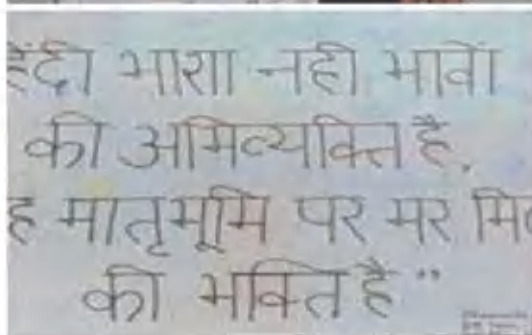 हिंदी भाशा नही भावों
की अभिव्यक्ति है,
ह मातृभूमि पर मर मि
की भक्ति है"